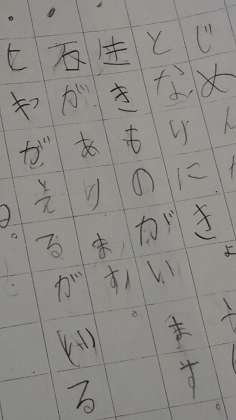 じめん
となりにき
生きものがいます
石があります。
ヒきがえるがいる